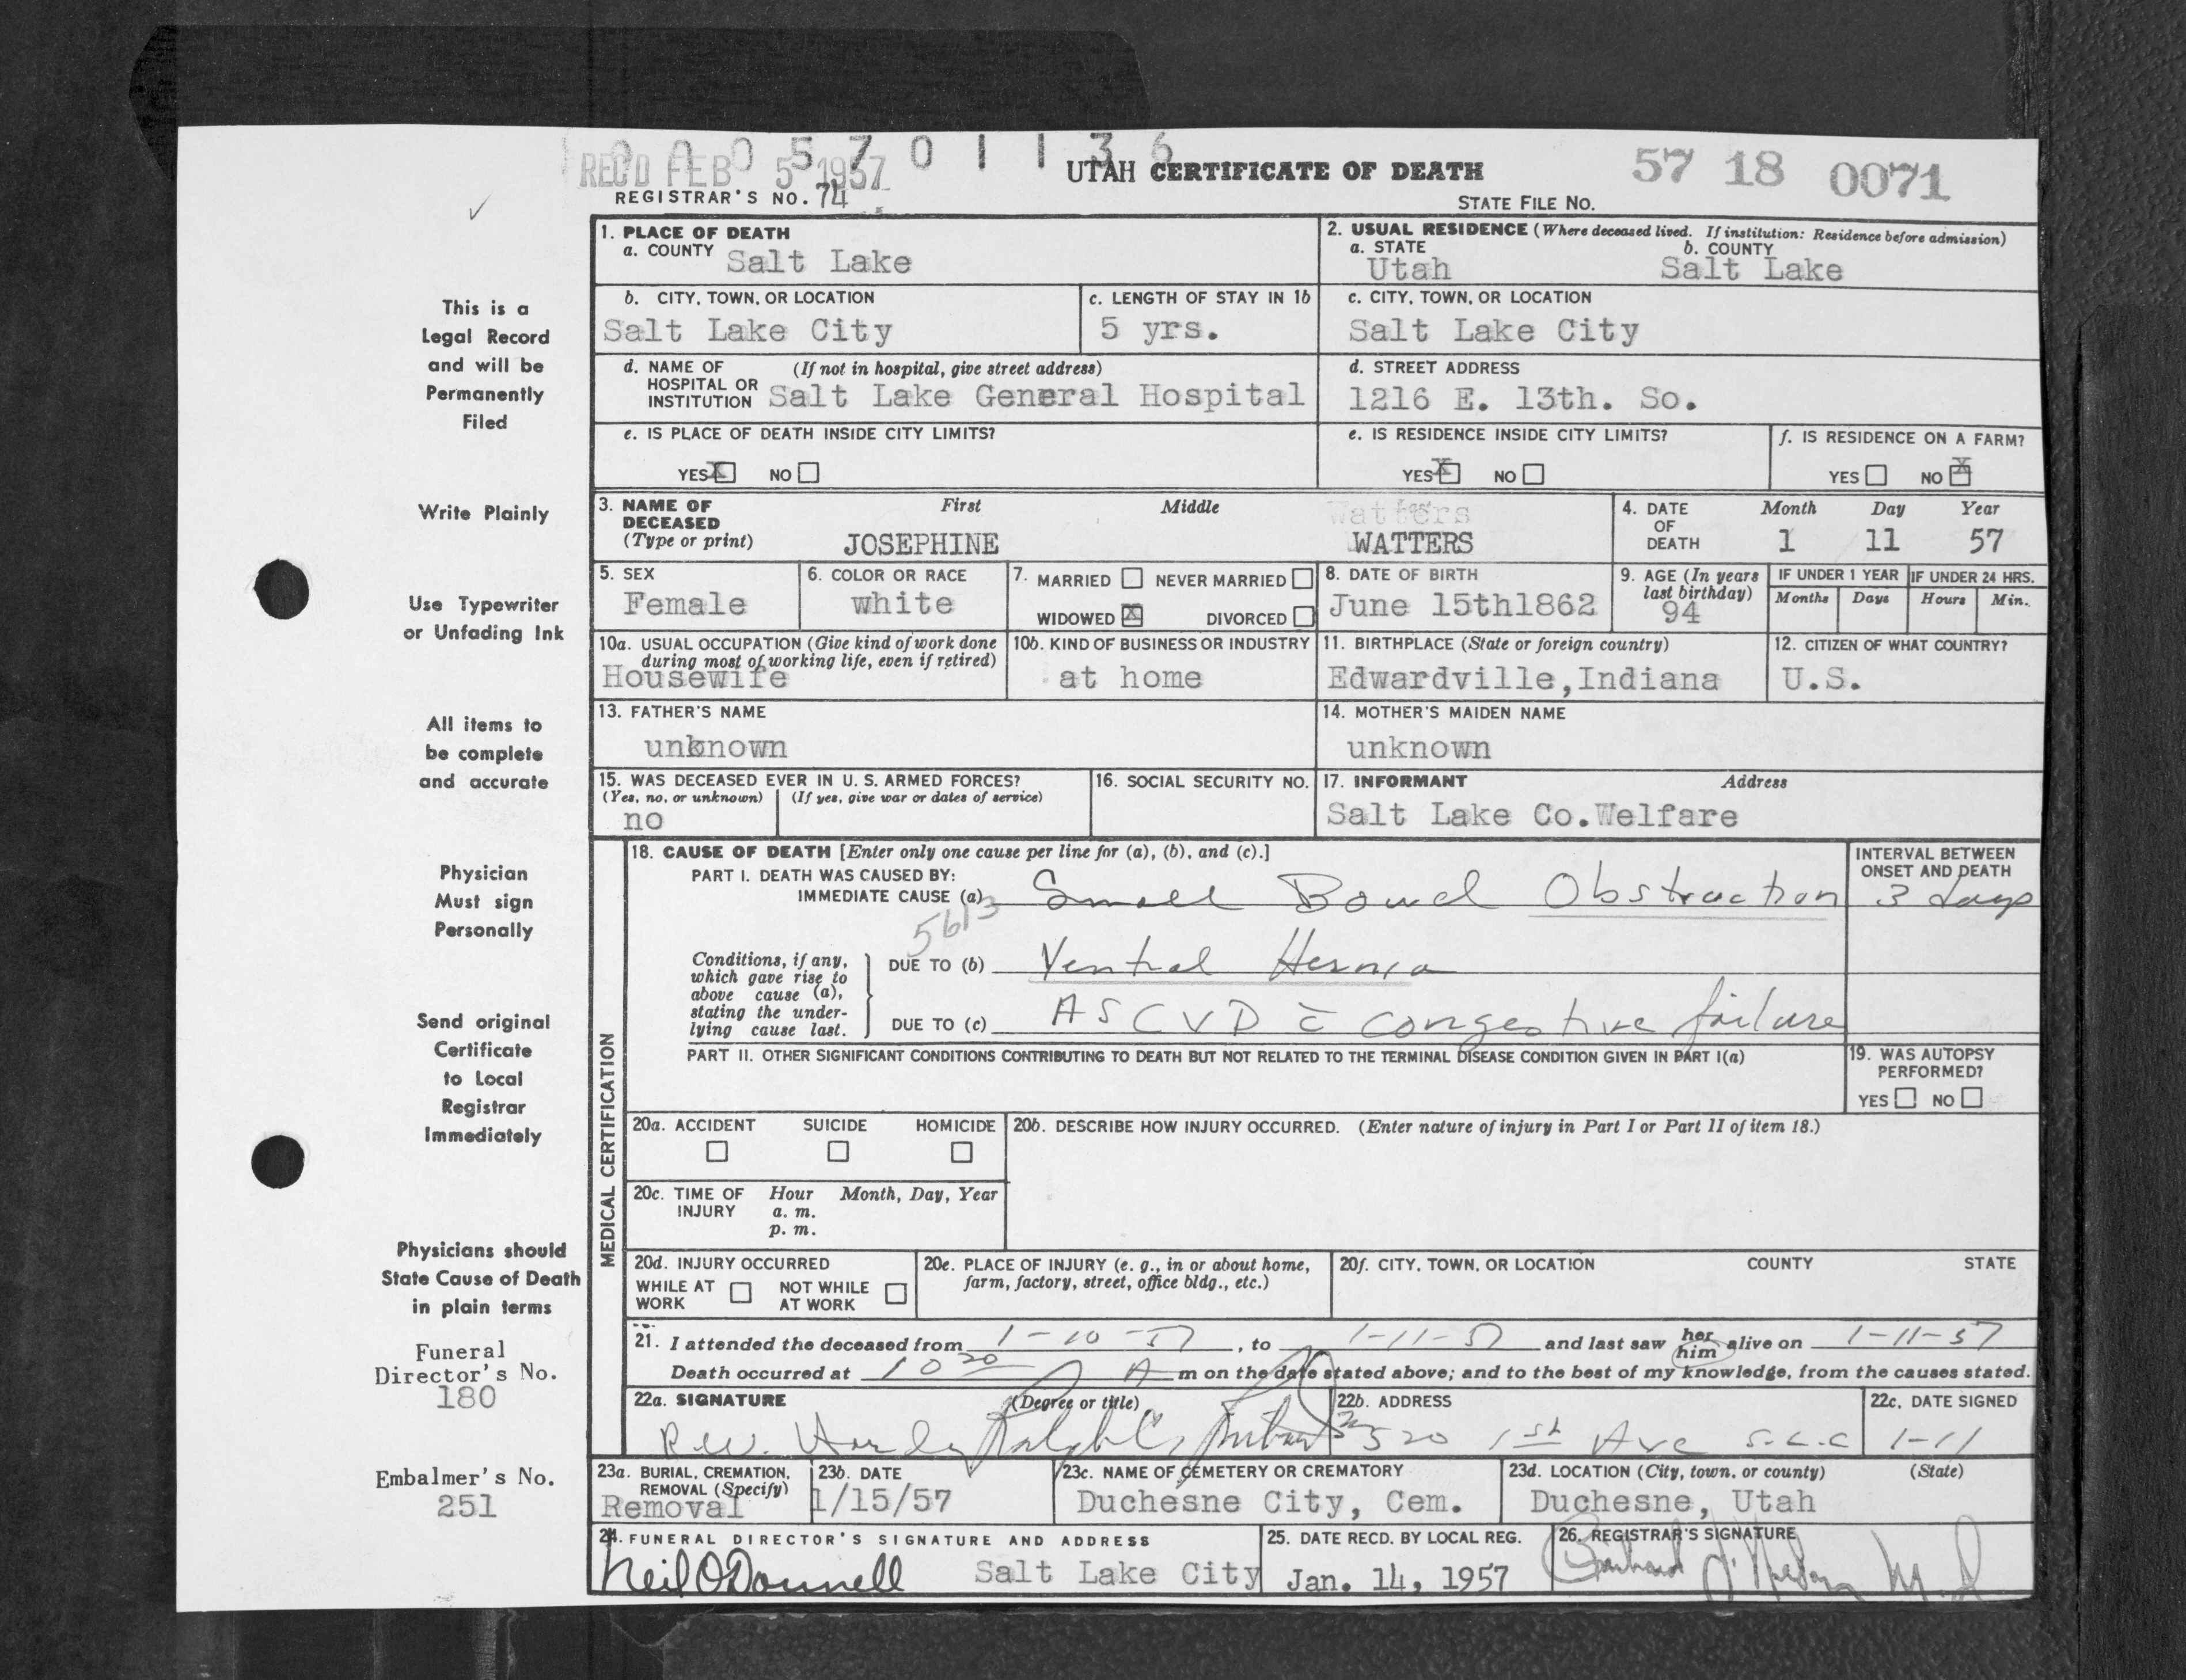 0 0 0 5 7 0 1 1 3 6
REC'D FEB 5 1957
UTAH CERTIFICATE OF DEATH
57 18 0071
REGISTRAR'S NO. 74
STATE FILE NO.
This is a
Legal Record
and will be
Permanently
Filed
Write Plainly
Use Typewriter
or Unfading Ink
All items to
be complete
and accurate
Physician
Must sign
Personally
Send original
Certificate
to Local
Registrar
Immediately
Physicians should
State Cause of Death
in plain terms
Funeral
Director's No.
180
Embalmer's No.
251
1. PLACE OF DEATH
a. COUNTY Salt Lake
2. USUAL RESIDENCE (Where deceased lived. If institution: Residence before admission)
a. STATE b. COUNTY
Utah Salt Lake
b. CITY, TOWN, OR LOCATION
Salt Lake City
c. LENGTH OF STAY IN 1b
5 yrs.
c. CITY, TOWN, OR LOCATION
Salt Lake City
d. NAME OF (If not in hospital, give street address)
HOSPITAL OR
INSTITUTION Salt Lake General Hospital
d. STREET ADDRESS
1216 E. 13th. So.
e. IS PLACE OF DEATH INSIDE CITY LIMITS?
YES X NO
e. IS RESIDENCE INSIDE CITY LIMITS?
YES X NO
f. IS RESIDENCE ON A FARM?
YES NO X
3. NAME OF First Middle Last
DECEASED Watters
(Type or print) JOSEPHINE WATTERS
4. DATE Month Day Year
OF
DEATH 1 11 57
5. SEX
Female
6. COLOR OR RACE
white
7. MARRIED NEVER MARRIED
WIDOWED X DIVORCED
8. DATE OF BIRTH
June 15th1862
9. AGE (In years
last birthday)
94
IF UNDER 1 YEAR
Months Days
IF UNDER 24 HRS.
Hours Min.
10a. USUAL OCCUPATION (Give kind of work done
during most of working life, even if retired)
Housewife
10b. KIND OF BUSINESS OR INDUSTRY
at home
11. BIRTHPLACE (State or foreign country)
Edwardville,Indiana
12. CITIZEN OF WHAT COUNTRY?
U.S.
13. FATHER'S NAME
unknown
14. MOTHER'S MAIDEN NAME
unknown
15. WAS DECEASED EVER IN U. S. ARMED FORCES?
(Yes, no, or unknown) (If yes, give war or dates of service)
no
16. SOCIAL SECURITY NO.
17. INFORMANT Address
Salt Lake Co.Welfare
MEDICAL CERTIFICATION
18. CAUSE OF DEATH [Enter only one cause per line for (a), (b), and (c).]
PART I. DEATH WAS CAUSED BY:
IMMEDIATE CAUSE (a) Small Bowel Obstruction
INTERVAL BETWEEN
ONSET AND DEATH
3 days
5613
Conditions, if any,
which gave rise to
above cause (a),
stating the under-
lying cause last.
DUE TO (b) Ventral Hernia
DUE TO (c) ASCVD c̄ congestive failure
PART II. OTHER SIGNIFICANT CONDITIONS CONTRIBUTING TO DEATH BUT NOT RELATED TO THE TERMINAL DISEASE CONDITION GIVEN IN PART I(a)
19. WAS AUTOPSY
PERFORMED?
YES NO
20a. ACCIDENT SUICIDE HOMICIDE
20b. DESCRIBE HOW INJURY OCCURRED. (Enter nature of injury in Part I or Part II of item 18.)
20c. TIME OF Hour Month, Day, Year
INJURY a. m.
p. m.
20d. INJURY OCCURRED
WHILE AT NOT WHILE
WORK AT WORK
20e. PLACE OF INJURY (e. g., in or about home,
farm, factory, street, office bldg., etc.)
20f. CITY, TOWN, OR LOCATION COUNTY STATE
21. I attended the deceased from 1-10-57, to 1-11-57 and last saw her him alive on 1-11-57
Death occurred at 10 20 A m on the date stated above; and to the best of my knowledge, from the causes stated.
22a. SIGNATURE (Degree or title)
R.W. Hardy Ralph C.
22b. ADDRESS
520 1st Ave S.L.C
22c. DATE SIGNED
1-11
23a. BURIAL, CREMATION,
REMOVAL (Specify)
Removal
23b. DATE
1/15/57
23c. NAME OF CEMETERY OR CREMATORY
Duchesne City, Cem.
23d. LOCATION (City, town, or county) (State)
Duchesne, Utah
24. FUNERAL DIRECTOR'S SIGNATURE AND ADDRESS
Neil O'Donnell Salt Lake City
25. DATE RECD. BY LOCAL REG.
Jan. 14, 1957
26. REGISTRAR'S SIGNATURE